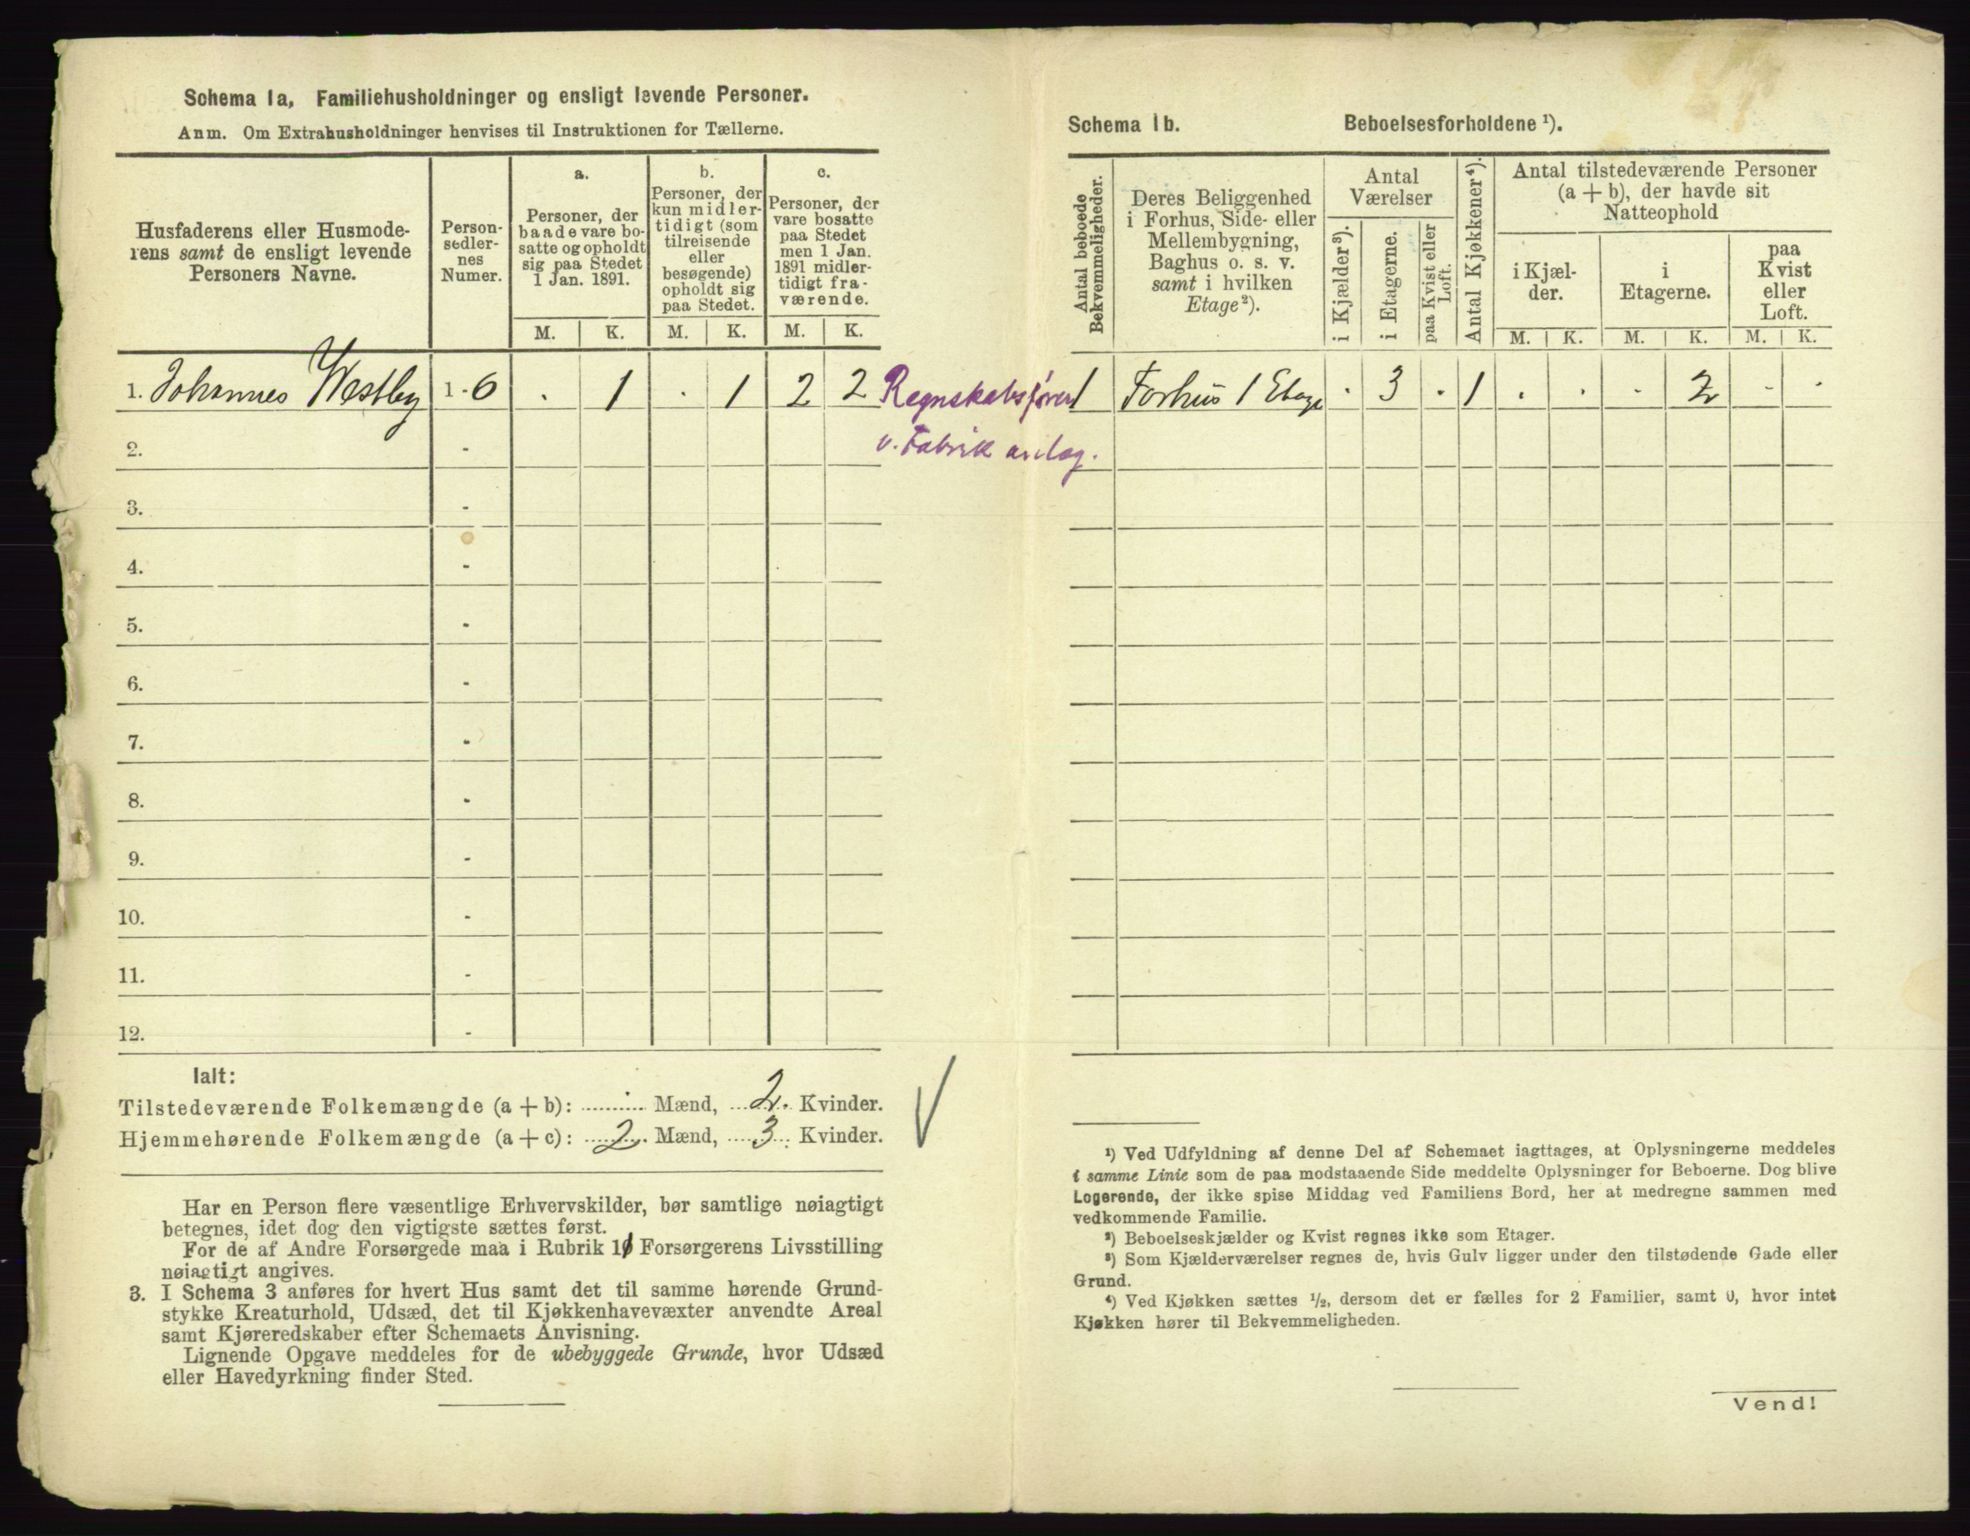 Schema 1a, Familiehusholdninger og ensligt levende Personer.
Anm. Om Extrahusholdninger henvises til Instruktionen for Tællerne.
Husfaderens eller Husmode-
rens samt de ensligt levende
Personers Navne.
Person-
sedler-
nes
Numer.
a.
Personer, der
baade vare bo-
satte og opholdt
sig paa Stedet
1 Jan. 1891.
b.
Personer, der
kun midler-
tidigt (som
tilreisende
eller
besøgende)
opholdt sig
paa Stedet.
c.
Personer, der
vare bosatte
paa Stedet
men 1 Jan.
1891 midler-
tidigt fra-
værende.
M. K. M. K. M. K.
1. Johannes Westby 1-6 . 1 . 1 2 2 Regnskabsfører
v. Fabrik anlæg.
2. -
3. -
4. -
5. -
6. -
7. -
8. -
9. -
10. -
11. -
12. -
Ialt:
Tilstedeværende Folkemængde (a + b): . Mænd, 2. Kvinder.
Hjemmehørende Folkemængde (a + c): 2. Mænd, 3. Kvinder.
Har en Person flere væsentlige Erhvervskilder, bør samtlige nøiagtigt
betegnes, idet dog den vigtigste sættes først.
For de af Andre Forsørgede maa i Rubrik 10 Forsørgerens Livsstilling
nøiagtigt angives.
3. I Schema 3 anføres for hvert Hus samt det til samme hørende Grund-
stykke Kreaturhold, Udsæd, det til Kjøkkenhavevæxter anvendte Areal
samt Kjøreredskaber efter Schemaets Anvisning.
Lignende Opgave meddeles for de ubebyggede Grunde, hvor Udsæd
eller Havedyrkning finder Sted.
Schema 1b. Beboelsesforholdene ¹).
Antal beboede
Bekvemmeligheder.
Deres Beliggenhed
i Forhus, Side- eller
Mellembygning,
Baghus o. s. v.
samt i hvilken
Etage²).
Antal
Værelser
i Kjælder³).
i Etagerne.
paa Kvist eller
Loft.
Antal Kjøkkener⁴).
Antal tilstedeværende Personer
(a + b), der havde sit
Natteophold
i Kjæl-
der.
i
Etagerne.
paa
Kvist
eller
Loft.
M. K. M. K. M. K.
1 Forhus 1 Etage . 3 . 1 . . . 2 . .
¹) Ved Udfyldning af denne Del af Schemaet iagttages, at Oplysningerne meddeles
i samme Linie som de paa modstaaende Side meddelte Oplysninger for Beboerne. Dog blive
Logerende, der ikke spise Middag ved Familiens Bord, her at medregne sammen med
vedkommende Familie.
²) Beboelseskjælder og Kvist regnes ikke som Etager.
³) Som Kjælderværelser regnes de, hvis Gulv ligger under den tilstødende Gade eller
Grund.
⁴) Ved Kjøkken sættes ½, dersom det er fælles for 2 Familier, samt 0, hvor intet
Kjøkken hører til Bekvemmeligheden.
Vend!